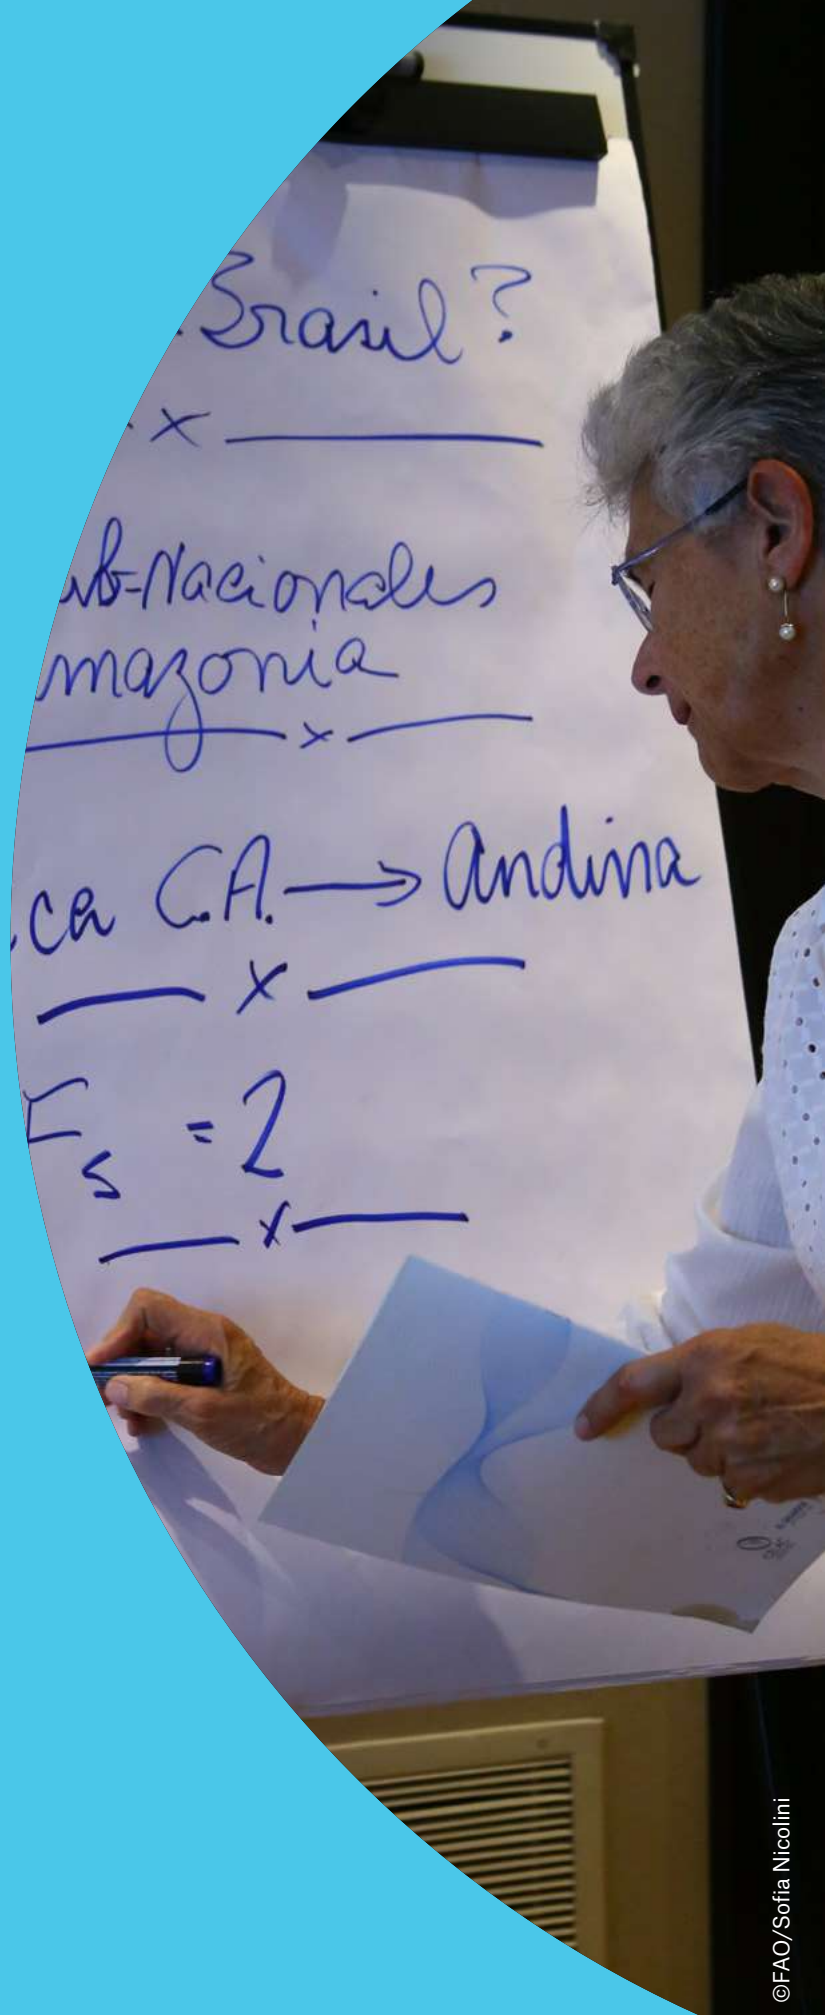 Brasil?
x
ub-Nacionales
mazonia
x
ca C.A. → Andina
x
Fs = 2
x
©FAO/Sofia Nicolini